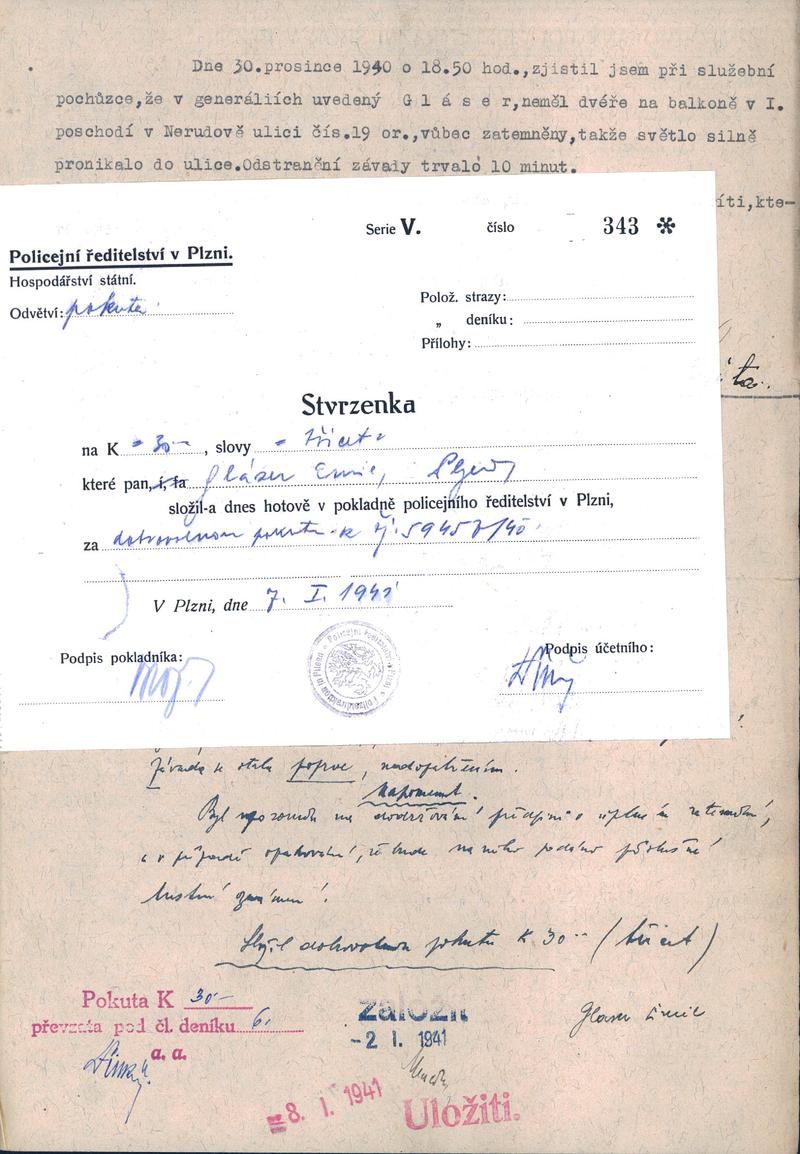 Dne 30.prosince 1940 o 18.50 hod.,zjistil jsem při služební
pochůzce,že v generáliích uvedený G l á s e r,neměl dvéře na balkoně v I.
poschodí v Nerudově ulici čís.19 or.,vůbec zatemněny,takže světlo silně
pronikalo do ulice.Odstranění závady trvalo 10 minut.
íti,kte-
Serie V. číslo 343 ✻
Policejní ředitelství v Plzni.
Hospodářství státní.
Odvětví: pokuta
Polož. strazy:
„ deníku:
Přílohy:
Stvrzenka
na K = 30 — , slovy = třicet =
které pan, í, fa Gláser Emil,
složil-a dnes hotově v pokladně policejního ředitelství v Plzni,
za dobrovolnou pokutu k čj. 59457/40.
V Plzni, dne 7. I. 1941
Podpis pokladníka: Podpis účetního:
Policejní ředitelství v Plzni * Polizeidirektion in Pilsen *
Závada se stala poprve, nedopatřením.
Napomenut.
Byl upozorněn na dodržování předpisů o úplném zatemnění,
a v případě opakování, že bude na něho podáno příslušné
trestní oznámení.
Složil dobrovolnou pokutu K 30 -- (třicet)
Pokuta K 30 —
převzata pod čl. deníku 6.
a. a.
založit
- 2 I. 1941
Glaser Emil
= 8. I. 1941
Uložiti.